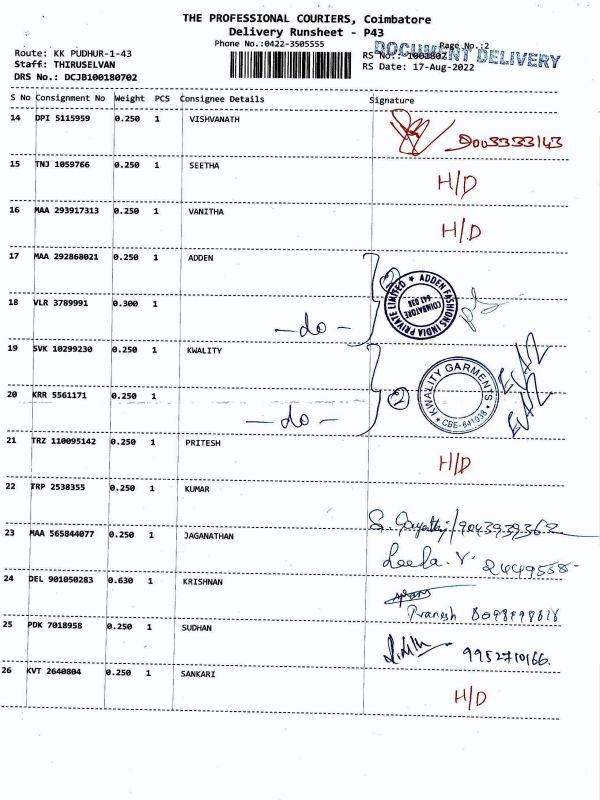 THE PROFESSIONAL COURIERS, Coimbatore
Delivery Runsheet - P43
Phone No.:0422-3505555
Page No.:2
DOCUMENT DELIVERY
Route: KK PUDHUR-1-43
RS No.: 1001807
Staff: THIRUSELVAN
RS Date: 17-Aug-2022
DRS No.: DCJB100180702
S No Consignment No Weight PCS Consignee Details Signature
14 DPI 5115959 0.250 1 VISHVANATH
15 TNJ 1059766 0.250 1 SEETHA H/D
16 MAA 293917313 0.250 1 VANITHA H/D
17 MAA 292868021 0.250 1 ADDEN 2
ADDEN FASHIONS INDIA PRIVATE LIMITED ★
COIMBATORE
641 038
18 VLR 3789991 0.300 1 -do-
19 SVK 10299230 0.250 1 KWALITY
KWALITY GARMENTS
* CBE-641038 *
20 KRR 5561171 0.250 1 -do- 2
21 TRZ 110095142 0.250 1 PRITESH H/D
22 TRP 2538355 0.250 1 KUMAR
S. Gayathri/9043939362
23 MAA 565844077 0.250 1 JAGANATHAN
Leela.V. 2449558-
24 DEL 901050283 0.630 1 KRISHNAN
Pranesh
25 PDK 7018958 0.250 1 SUDHAN
9952710166.
26 KVT 2640804 0.250 1 SANKARI H/D